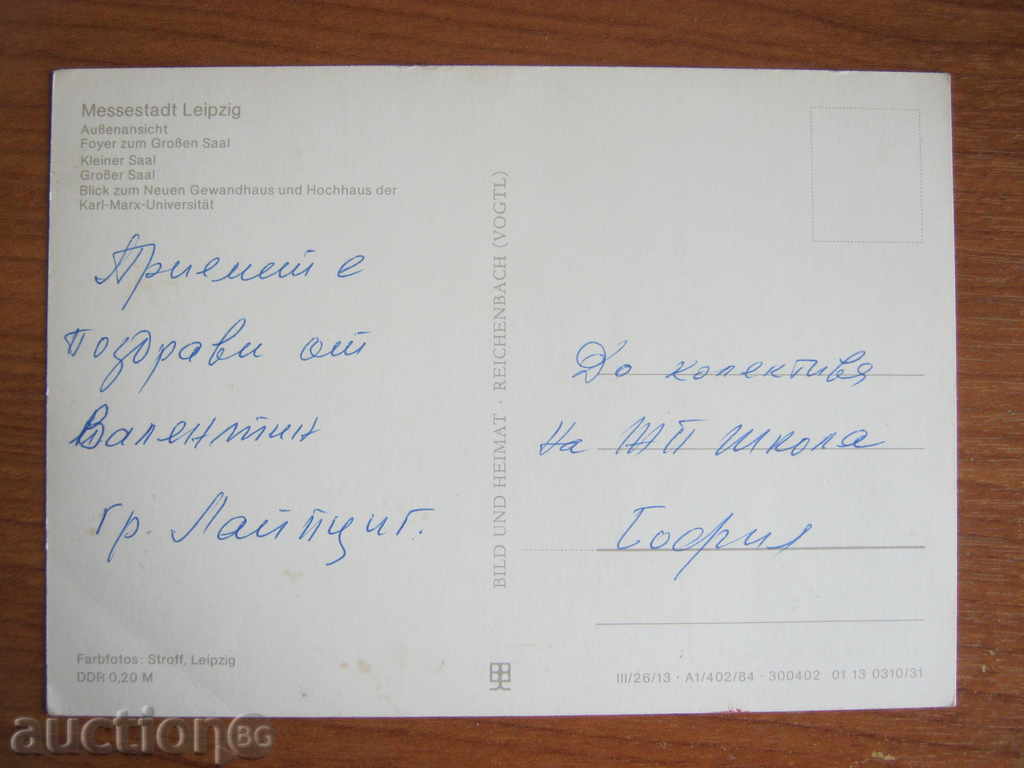 Messestadt Leipzig
Außenansicht
Foyer zum Großen Saal
Kleiner Saal
Großer Saal
Blick zum Neuen Gewandhaus und Hochhaus der
Karl-Marx-Universität
Приемете
Поздрави от
Валентин
гр. Лайпциг.
Farbfotos: Stroff, Leipzig
DDR 0,20 M
BILD UND HEIMAT · REICHENBACH (VOGTL)
До колектива
на ЖП школа
София
III/26/13 · A1/402/84 · 300402 01 13 0310/31
auction BG